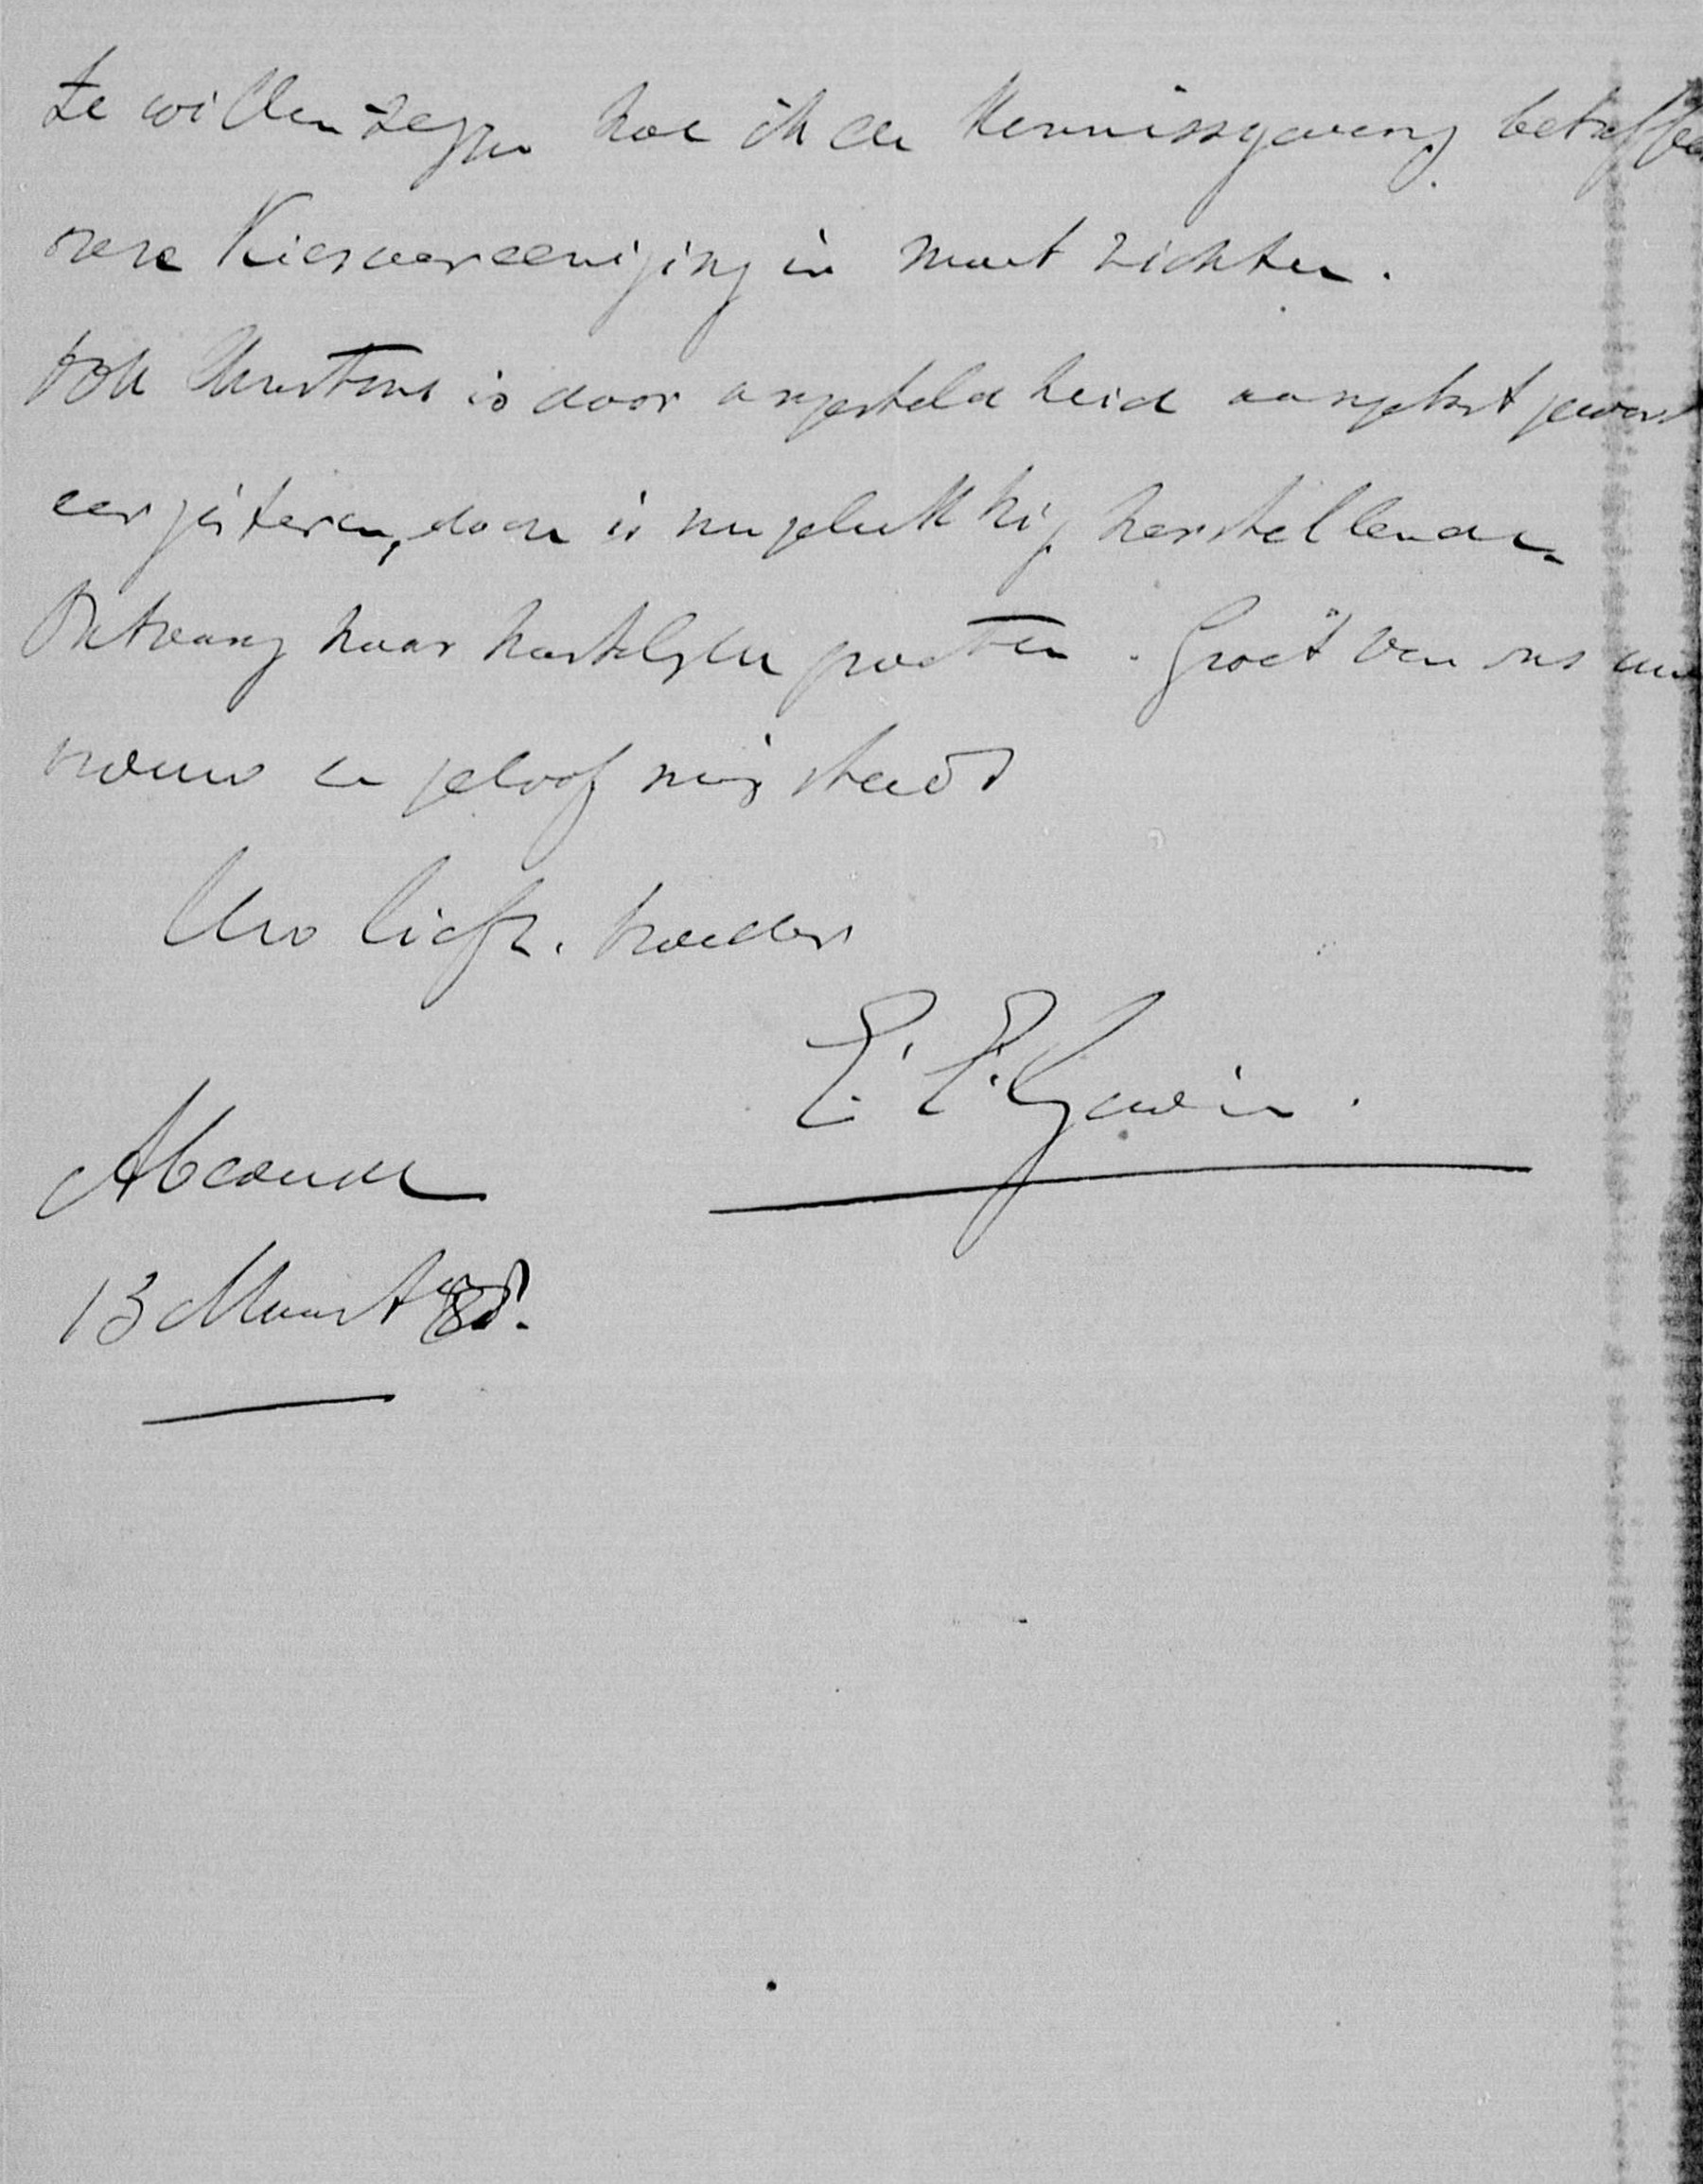 te willen zeggen hoe ik de kennissgeving betreffen
onze Kiesvereeniging in moet richten.
Ook is door ongesteldheid aangetast geword
eergisteren, doch is nu gelukkig herstellende.
Ontvang haar hartelyken groeten. Groet van ons uw
vrouw en geloof mij steeds
Uw liefh. broeder
E. E. Gewin.
Abcoude
13 Maart 88.